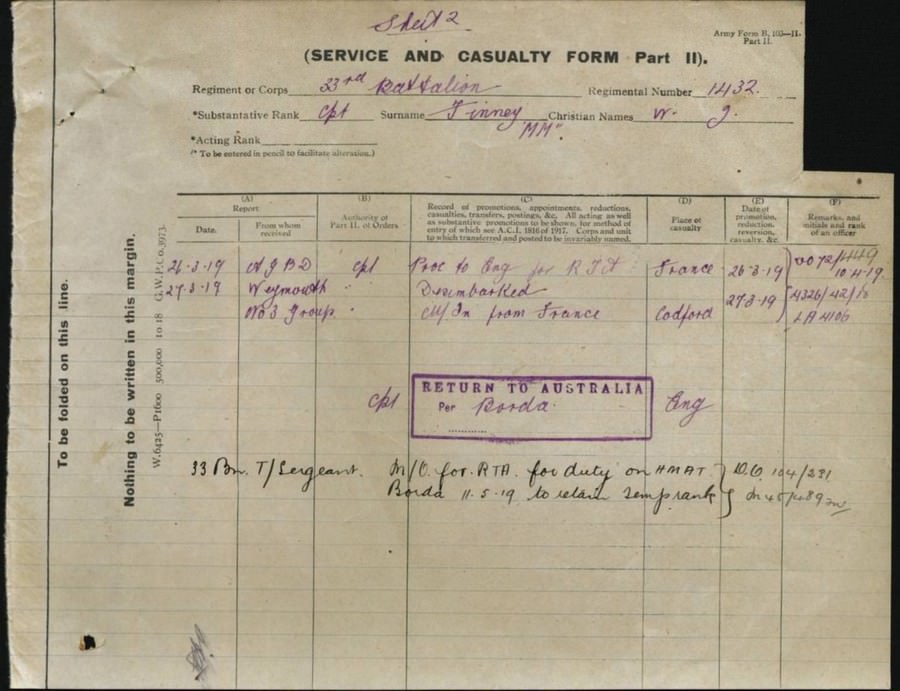 Sheet 2
Army Form B. 103—II.
Part II.
(SERVICE AND CASUALTY FORM Part II).
Regiment or Corps 33rd Battalion Regimental Number 1432.
*Substantative Rank Cpl Surname Finney Christian Names W. J.
"MM".
*Acting Rank
(* To be entered in pencil to facilitate alteration.)
(A)
Report
Date.
From whom received
(B)
Authority of Part II. of Orders
(C)
Record of promotions, appointments, reductions, casualties, transfers, postings, &c. All acting as well as substantive promotions to be shown, for method of entry of which see A.C.I. 1816 of 1917. Corps and unit to which transferred and posted to be invariably named.
(D)
Place of casualty
(E)
Date of promotion, reduction, reversion, casualty, &c.
(F)
Remarks, and initials and rank of an officer
26-3-19 A G B D Cpl Proc to Eng for R T A France 26-3-19
10.4.19.
27-3-19 Weymouth " Disembarked
No 3 Group " M/In from France Codford 27-3-19
Cpl RETURN TO AUSTRALIA Eng
Per Borda
33 Bn. T/Sergeant. M/O. for. RTA. for duty on HMAT. D.O. 104/231
Borda 11.5.19 to retain temp rank
To be folded on this line.
Nothing to be written in this margin.
W.6425—P1600 500,000 10 18 G.W.P.Co.3973.